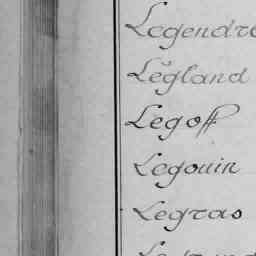 Legendre
Legland
Legoff
Legouin
Legras